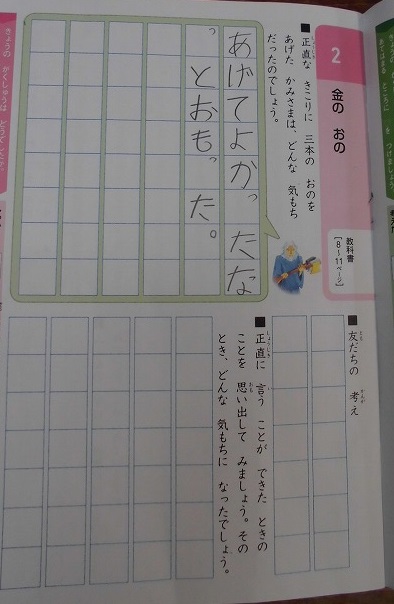 2 金の おの
教科書
[8〜11ページ]
■正直な きこりに 三本の おのを
あげた かみさまは、どんな 気もち
だったのでしょう。
あげてよかったな
っとおもった。
■友だちの 考え
■正直に 言う ことが できた ときの
ことを 思い出して みましょう。その
とき、どんな 気もちに なったでしょう。